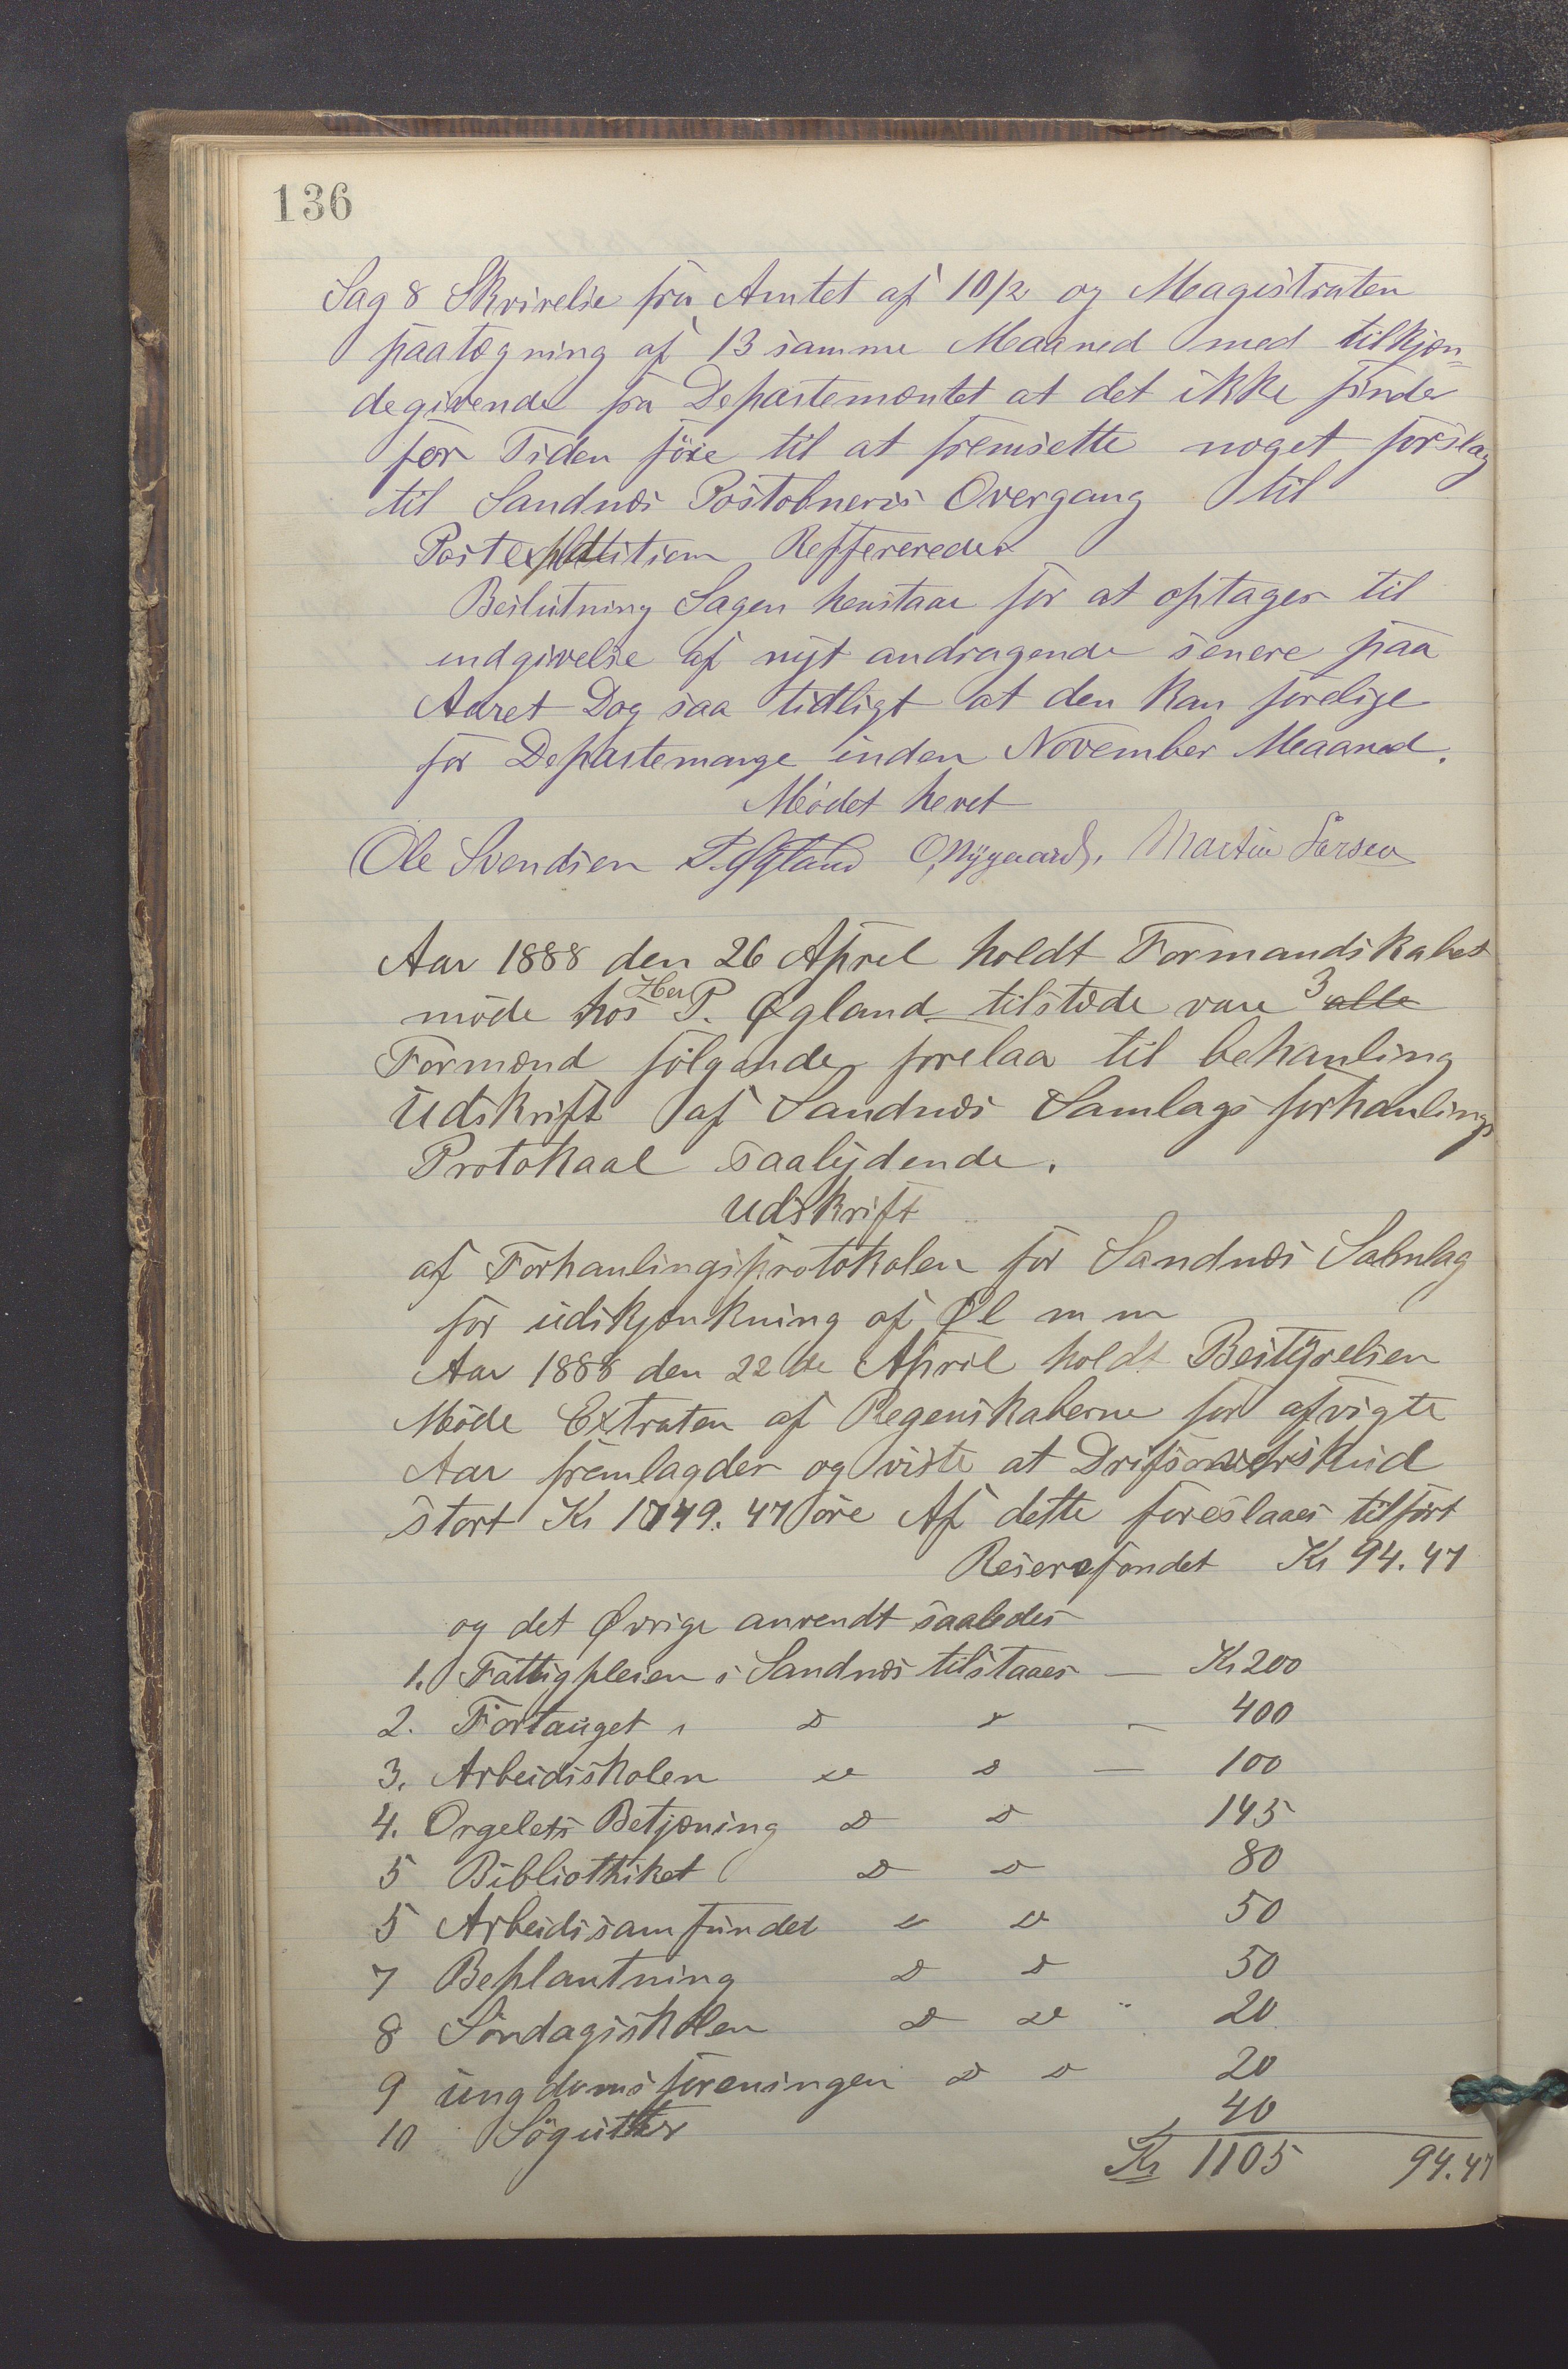 136
Sag 8 Skrivelse fra Amtet af 10/2 og Magistraten
paategning af 13 samme Maaned med tilkjæn=
degivende fra Departemæntet at det ikke finde
for Tiden föie til at fremsette noget forslag
til Sandnæs Postobneris Overgang til
Postexpedition Reffereredes
Beslutning Sagen henstaar for at optages til
indgivelse af nyt andragende senere paa
Aaret Dog saa tidligt at den kan forelige
for Departemange inden November Maaned.
Mödet hevet
Ole Svendsen P. Øgland O, Nygaard, Martin Larsen
Aar 1888 den 26 April holdt Formandskabet
möde hos Her P. Øgland tilstæde vare 3 alle
Formænd fölgende forelaa til behanling
Udskrift af Sandnæs Samlags forhanlings
Protokaal saalydende.
Udskrift
af Forhanlingsprotokolen for Sandnæs Samlag
for udskjænkning af Øl m m
Aar 1888 den 22de April holdt Bestyrelsen
Möde Extraten af Regenskaberne for afvigte
Aar fremlagdes og viste at Drifsoverskud
stort Kr 1749.47 öre Af dette foreslaaes tilfört
Reservefondet Kr 94.47
og det Øvrige anvendt saaledes
1. Fattigpleien i Sandnæs tilstaaes — Kr 200
2. Fortauget i D D — 400
3. Arbeidsskolen D D — 100
4. Orgelets Betjæning D D 145
5 Bibliothiket D D 80
5 Arbeidssamfundet D D 50
7 Beplantning D D 50
8 Söndagsskolen D D " 20
9 ungdomsforeningen D D 20
10 Sögutter 40
Kr 1105 94.47